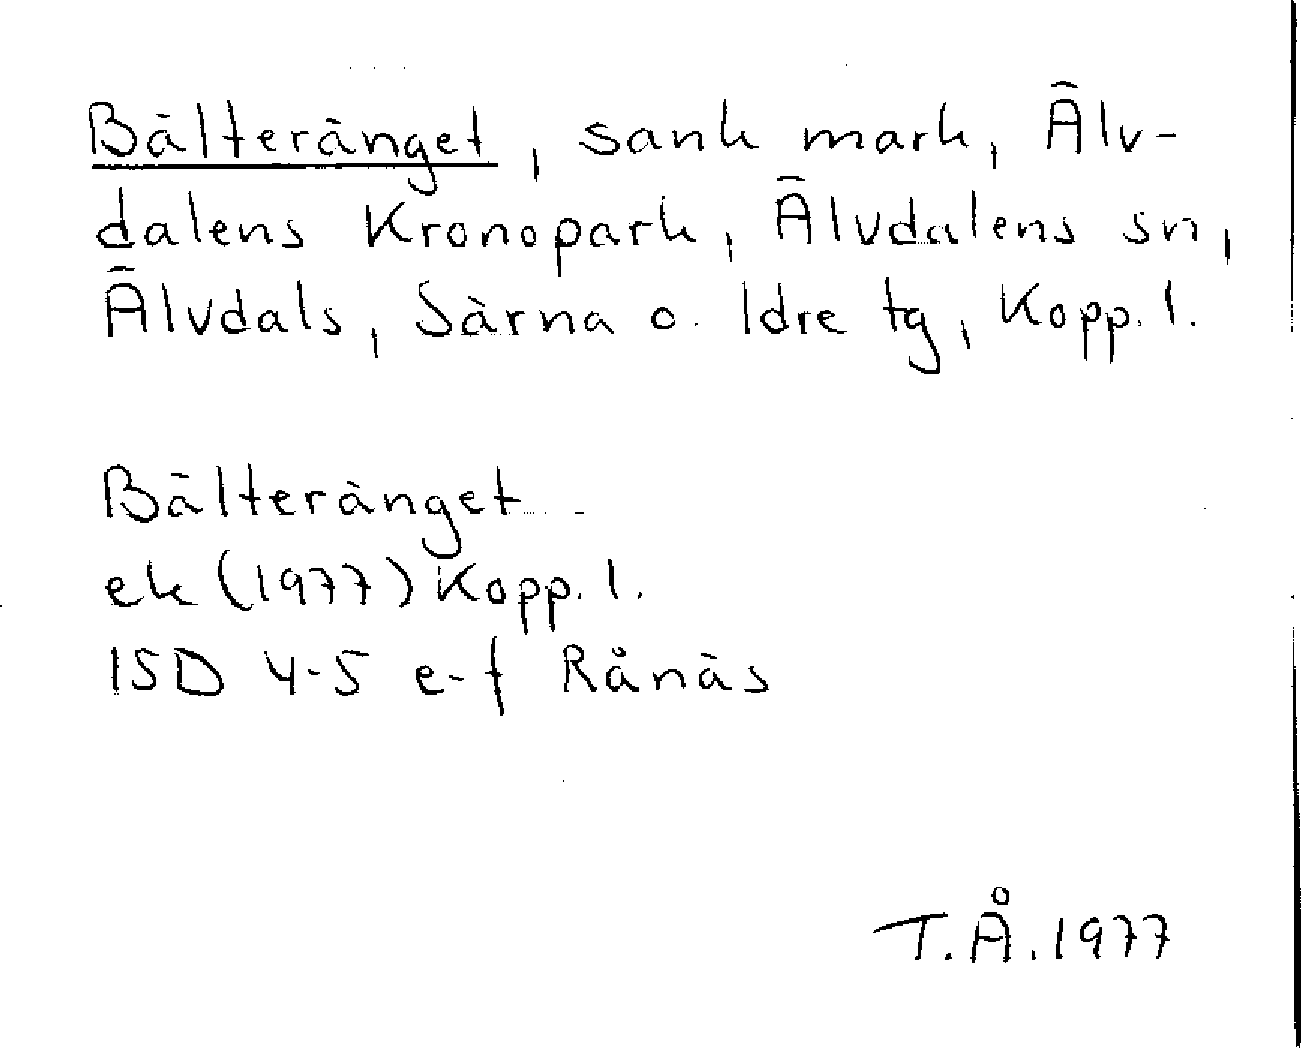 Bälteränget, sank mark, Älv-
dalens Kronopark, Älvdalens sn,
Älvdals, Särna o. Idre tg, Kopp. l.
Bälteränget
ek (1977) Kopp. l.
15D 4-5 e-f Rånäs
T.Å. 1977